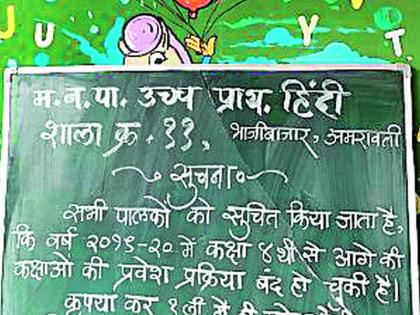 J
U
Y
T
म.न.पा. उच्च प्राथ. हिंदी
शाला क्र. ११, भाजीबाजार, अमरावती
सूचना
सभी पालकों को सूचित किया जाता है,
कि वर्ष २०१९-२० में कक्षा ४ थी से आगे की
कक्षाओं की प्रवेश प्रक्रिया बंद हो चुकी है।
कृपया कर १ली में ही